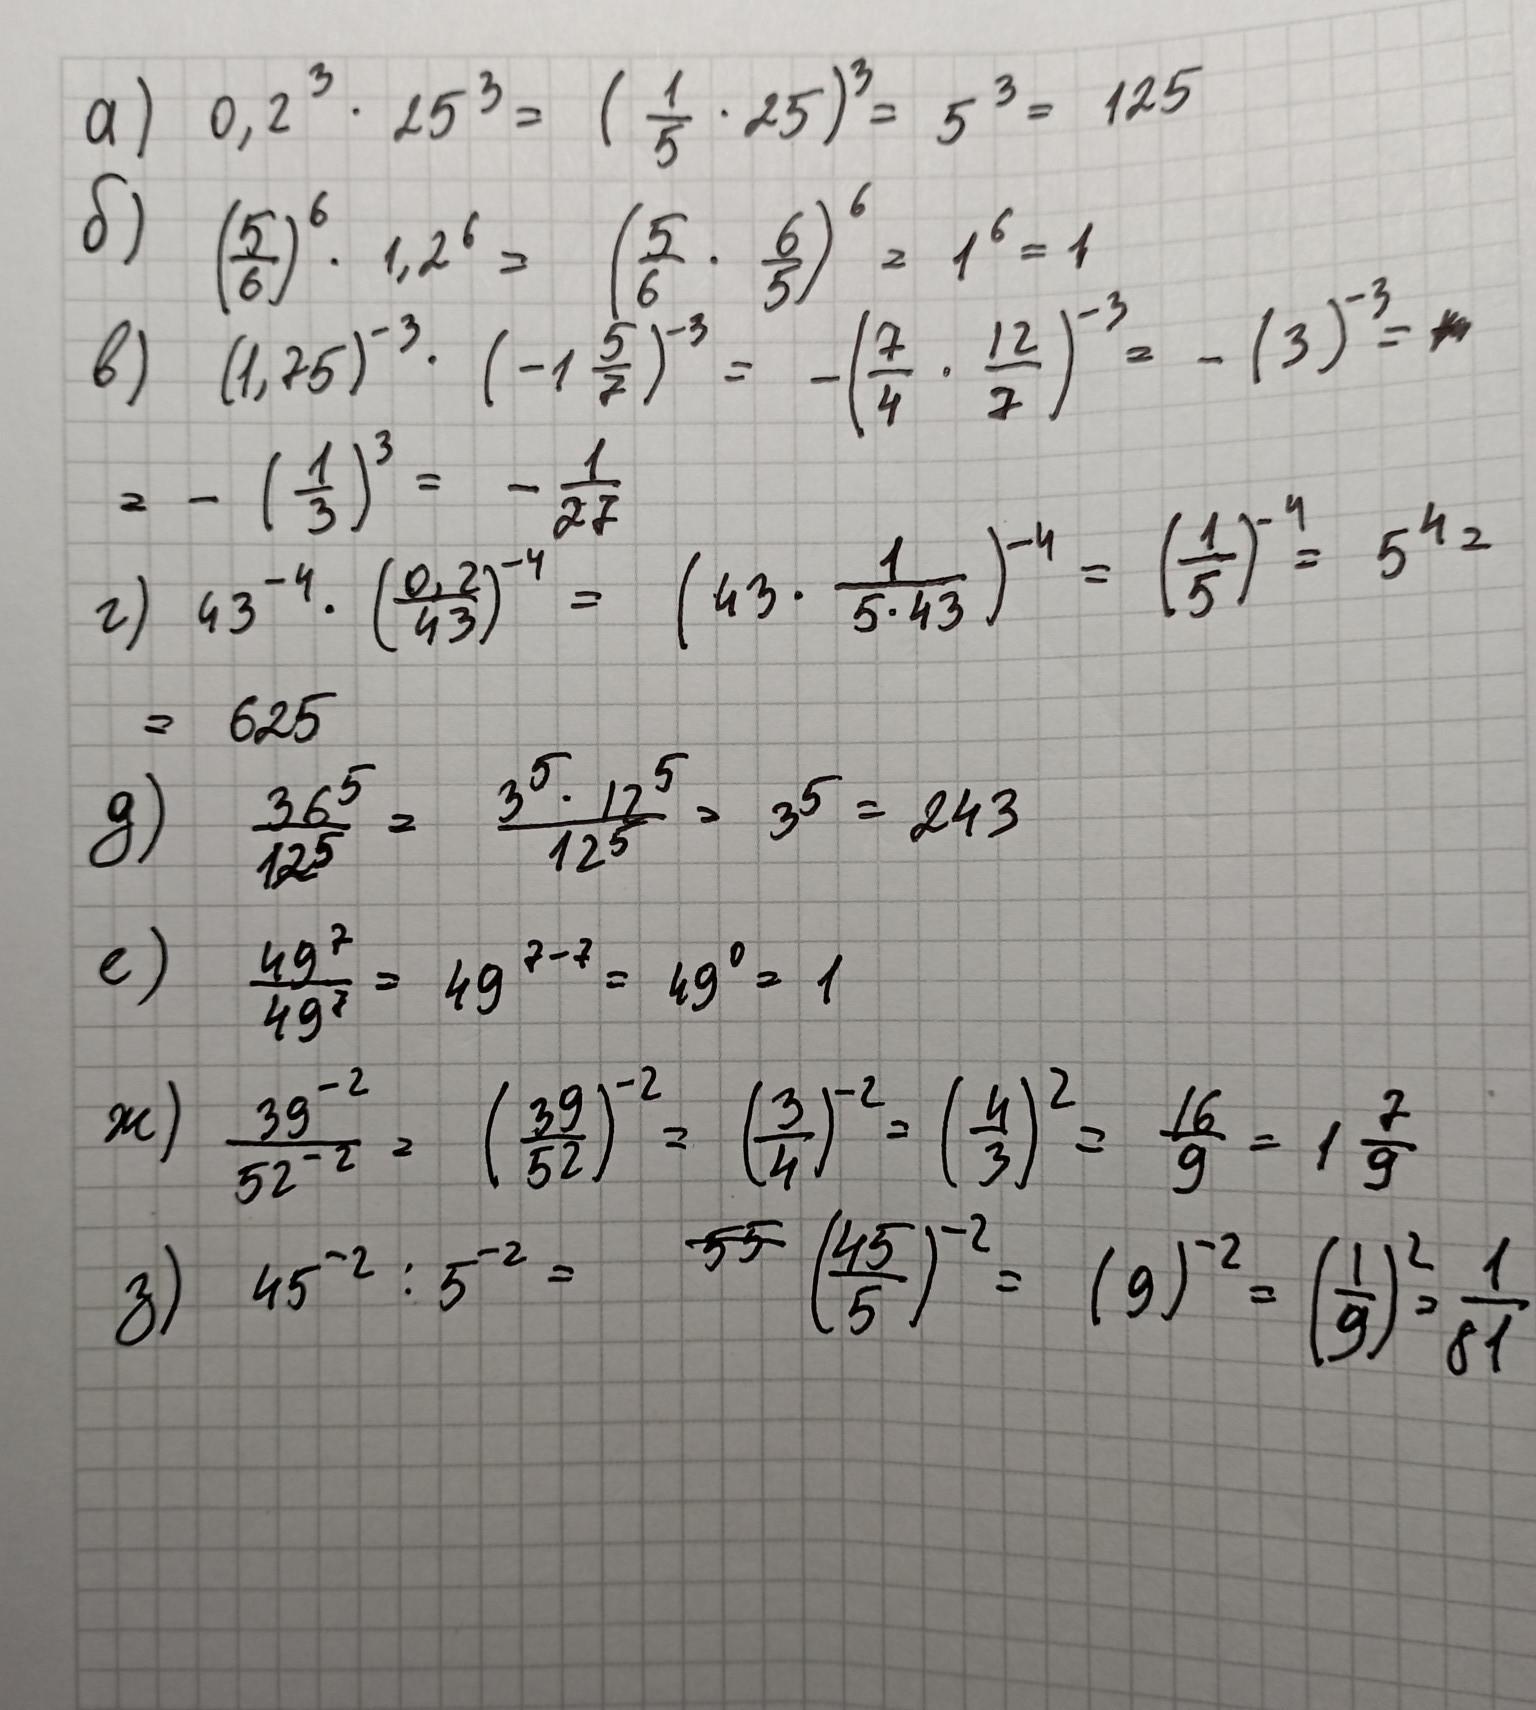 а) 0,2³ · 25³ = (1/5 · 25)³ = 5³ = 125
б) (5/6)⁶ · 1,2⁶ = (5/6 · 6/5)⁶ = 1⁶ = 1
в) (1,75)⁻³ · (-1 5/7)⁻³ = -(7/4 · 12/7)⁻³ = -(3)⁻³ =
= -(1/3)³ = -1/27
г) 43⁻⁴ · (0,2/43)⁻⁴ = (43 · 1/(5·43))⁻⁴ = (1/5)⁻⁴ = 5⁴ =
= 625
д) 36⁵/12⁵ = (3⁵ · 12⁵)/12⁵ = 3⁵ = 243
е) 49⁷/49⁷ = 49⁷⁻⁷ = 49⁰ = 1
ж) 39⁻²/52⁻² = (39/52)⁻² = (3/4)⁻² = (4/3)² = 16/9 = 1 7/9
з) 45⁻² : 5⁻² = (45/5)⁻² = (9)⁻² = (1/9)² = 1/81